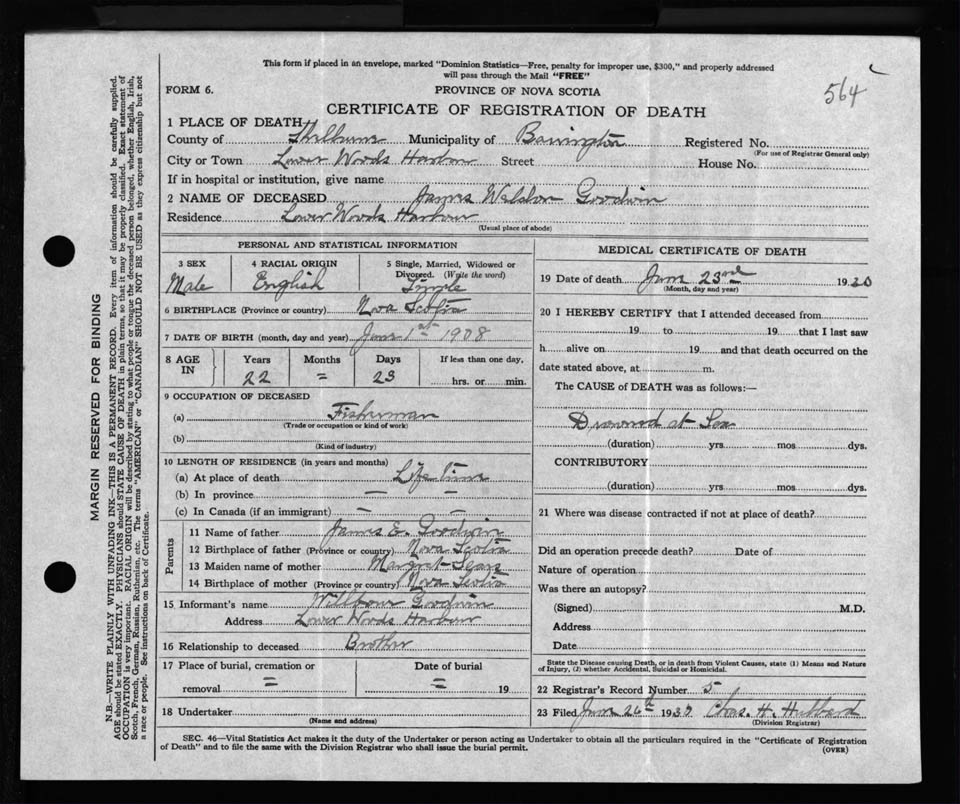 This form if placed in an envelope, marked "Dominion Statistics—Free, penalty for improper use, $300," and properly addressed
will pass through the Mail "FREE"
FORM 6.
PROVINCE OF NOVA SCOTIA
564
CERTIFICATE OF REGISTRATION OF DEATH
1 PLACE OF DEATH
County of Shelburne Municipality of Barrington Registered No.
(For use of Registrar General only)
City or Town Lower Woods Harbor Street House No.
If in hospital or institution, give name
2 NAME OF DECEASED James Goodwin
Residence Lower Woods Harbour
(Usual place of abode)
PERSONAL AND STATISTICAL INFORMATION
3 SEX 4 RACIAL ORIGIN 5 Single, Married, Widowed or
Divorced. (Write the word)
Male English Single
6 BIRTHPLACE (Province or country) Nova Scotia
7 DATE OF BIRTH (month, day and year) 1st 1908
8 AGE IN Years Months Days If less than one day,
22 = 23 hrs. or min.
9 OCCUPATION OF DECEASED
(a) Fisherman
(Trade or occupation or kind of work)
(b)
(Kind of industry)
10 LENGTH OF RESIDENCE (in years and months)
(a) At place of death Life time
(b) In province — —
(c) In Canada (if an immigrant) — —
Parents
11 Name of father James E. Goodwin
12 Birthplace of father (Province or country) Nova Scotia
13 Maiden name of mother Margret Sears
14 Birthplace of mother (Province or country) Nova Scotia
15 Informant's name Goodwin
Address Lower Woods Harbour
16 Relationship to deceased Brother
17 Place of burial, cremation or Date of burial
removal = = 19
18 Undertaker
(Name and address)
MEDICAL CERTIFICATE OF DEATH
19 Date of death 23rd 1930
(Month, day and year)
20 I HEREBY CERTIFY that I attended deceased from
19 to 19 that I last saw
h alive on 19 and that death occurred on the
date stated above, at m.
The CAUSE of DEATH was as follows:—
Drowned at Sea
(duration) yrs mos dys.
CONTRIBUTORY
(duration) yrs mos dys.
21 Where was disease contracted if not at place of death?
Did an operation precede death? Date of
Nature of operation
Was there an autopsy?
(Signed) M.D.
Address
Date
State the Disease causing Death, or in death from Violent Causes, state (1) Means and Nature
of Injury, (2) whether Accidental, Suicidal or Homicidal.
22 Registrar's Record Number 5
23 Filed 26th Chas. H. Hubbard
(Division Registrar)
SEC. 46—Vital Statistics Act makes it the duty of the Undertaker or person acting as Undertaker to obtain all the particulars required in the "Certificate of Registration
of Death" and to file the same with the Division Registrar who shall issue the burial permit.
(OVER)
MARGIN RESERVED FOR BINDING
N.B.—WRITE PLAINLY WITH UNFADING INK—THIS IS A PERMANENT RECORD. Every item of information should be carefully supplied.
AGE should be stated EXACTLY. PHYSICIANS should STATE CAUSE OF DEATH in plain terms, so that it may be properly classified. Exact statement of
OCCUPATION is very important. RACIAL ORIGIN will be described by stating to what people or tongue the deceased person belonged, whether English, Irish,
Scotch, French, German, Russian, Ruthenian, etc. The terms "AMERICAN" or "CANADIAN" SHOULD NOT BE USED as they express citizenship but not
a race or people. See instructions on back of Certificate.